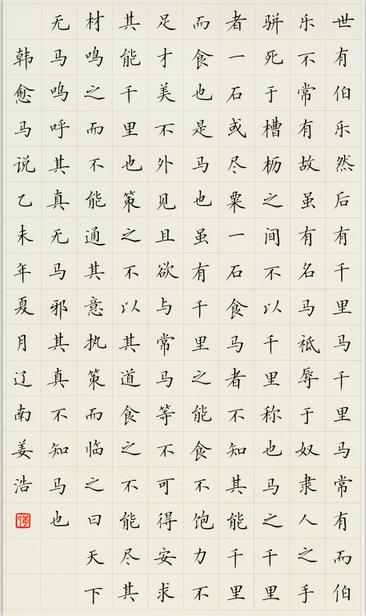 世有伯乐然后有千里马千里马常有而伯
乐不常有故虽有名马祗辱于奴隶人之手
骈死于槽枥之间不以千里称也马之千里
者一石或尽粟一石食马者不知其能千里
而食也是马也虽有千里之能食不饱力不
足才美不外见且欲与常马等不可得安求
其能千里也策之不以其道食之不能尽其
材鸣之而不能通其意执策而临之曰天下
无马呜呼其真无马邪其真不知马也
韩愈马说乙未年夏月辽南姜浩